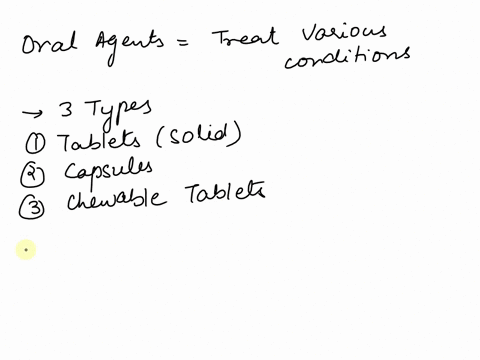 Oral Agents = Treat Various
conditions
→ 3 Types
① Tablets (solid)
② Capsules
③ Chewable Tablets